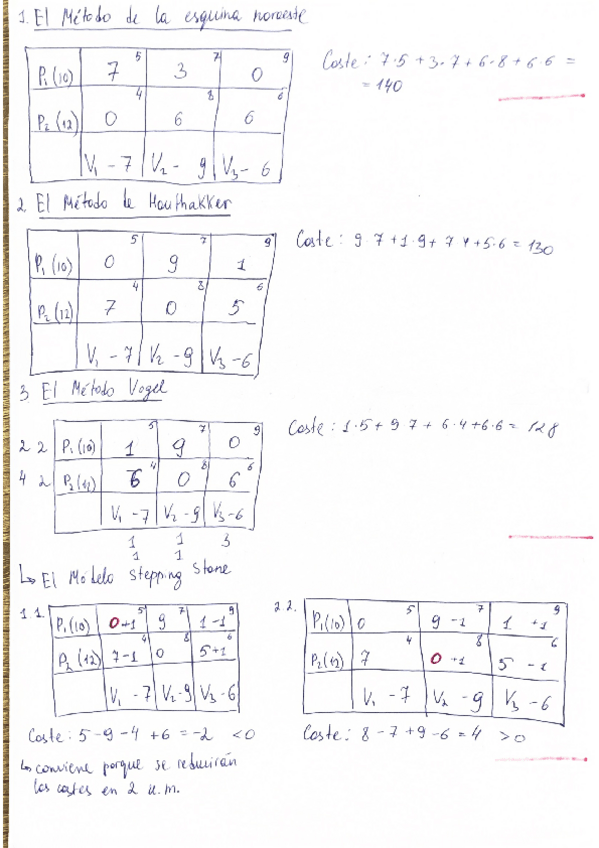 1. El Método de la esquina noroeste
5 7 9
P₁(10) 7 3 0
4 8 6
P₂(12) 0 6 6
V₁ - 7 V₂ - 9 V₃ - 6
Coste: 7·5 + 3·7 + 6·8 + 6·6 =
= 140
2 El Método de Houthakker
5 7 9
P₁(10) 0 9 1
4 8 6
P₂(12) 7 0 5
V₁ - 7 V₂ - 9 V₃ - 6
Coste: 9·7 + 1·9 + 7 4 + 5·6 = 130
3 El Método Vogel
5 7 9
2 2 P₁(10) 1 9 0
4 8 6
4 2 P₂(12) 6 0 6
V₁ - 7 V₂ - 9 V₃ - 6
1 1 3
1 1
Coste: 1·5 + 9 7 + 6·4 + 6·6 = 128
↳ El Modelo Stepping Stone
1 1.
5 7 9
P₁(10) 0+1 9 1-1
4 8 6
P₂(12) 7-1 0 5+1
V₁ - 7 V₂ - 9 V₃ - 6
Coste: 5 - 9 - 4 + 6 = -2 < 0
↳ conviene porque se reducirán
los costes en 2 u.m.
2 2.
5 7 9
P₁(10) 0 9 -1 1 +1
4 8 6
P₂(12) 7 0 +1 5 -1
V₁ - 7 V₂ - 9 V₃ - 6
Coste: 8 - 7 + 9 - 6 = 4 > 0